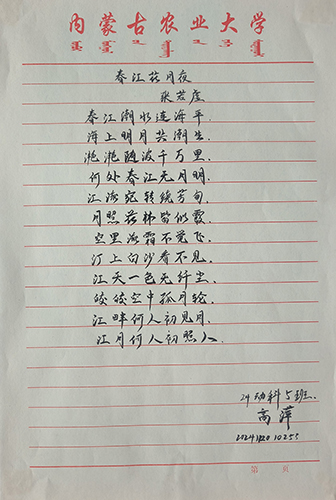 内蒙古农业大学
春江花月夜
张若虚
春江潮水连海平.
海上明月共潮生.
滟滟随波千万里.
何处春江无月明.
江流宛转绕芳甸.
月照花林皆似霰.
空里流霜不觉飞.
汀上白沙看不见.
江天一色无纤尘.
皎皎空中孤月轮.
江畔何人初见月.
江月何人初照人.
24动科5班.
高萍
第 页